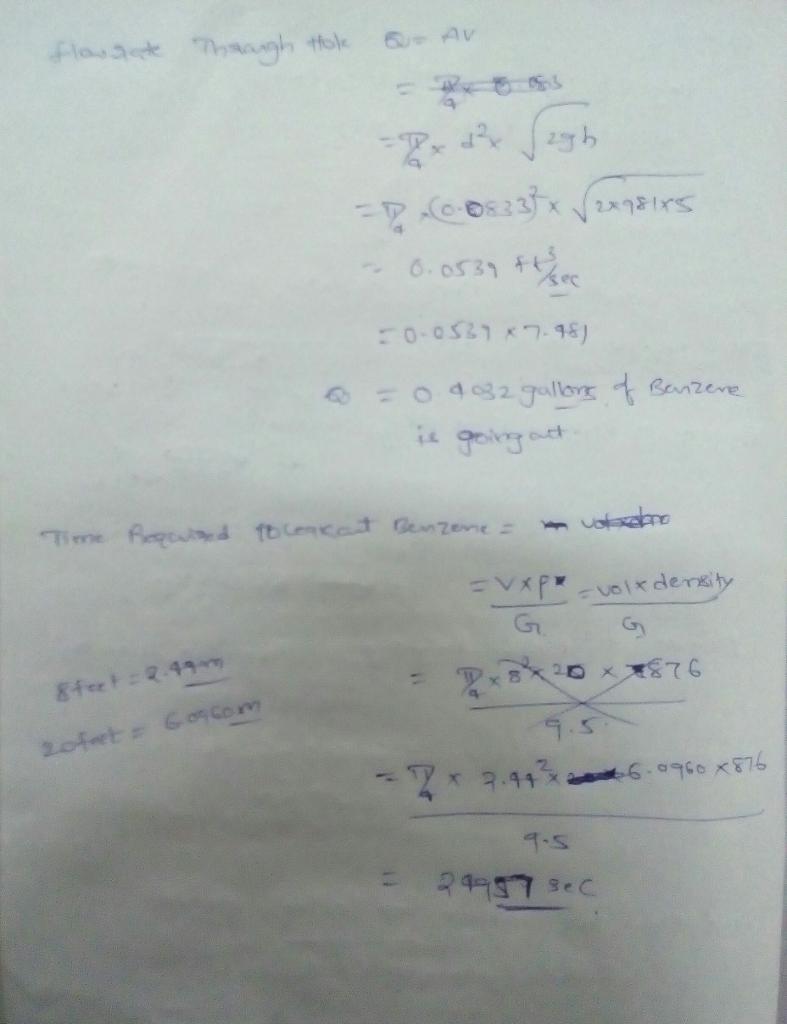 Flow rate Through Hole Q = AV
= π/4 × 0.083
= π/4 × d² × √2gh
= π/4 × (0.0833)² × √2×981×5
= 0.0539 ft³/sec
= 0.0539 × 7.481
Q = 0.4032 gallons of Benzene
is going out.
Time Required to leak out Benzene =
= V×ρ/G = vol×density/G
8 feet = 2.44m
= π/4 × 8² × 20 × 876 / 9.5
20 feet = 6.0960m
= π/4 × 2.44² × 6.0960 × 876 / 9.5
= 24957 sec